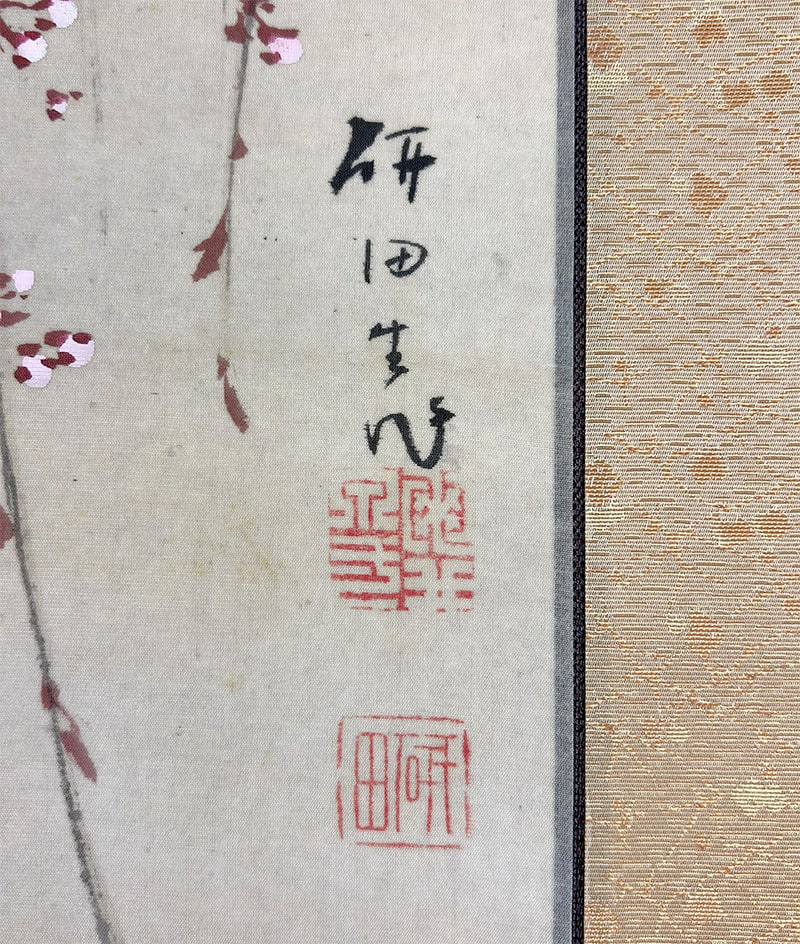 研田生作
研田